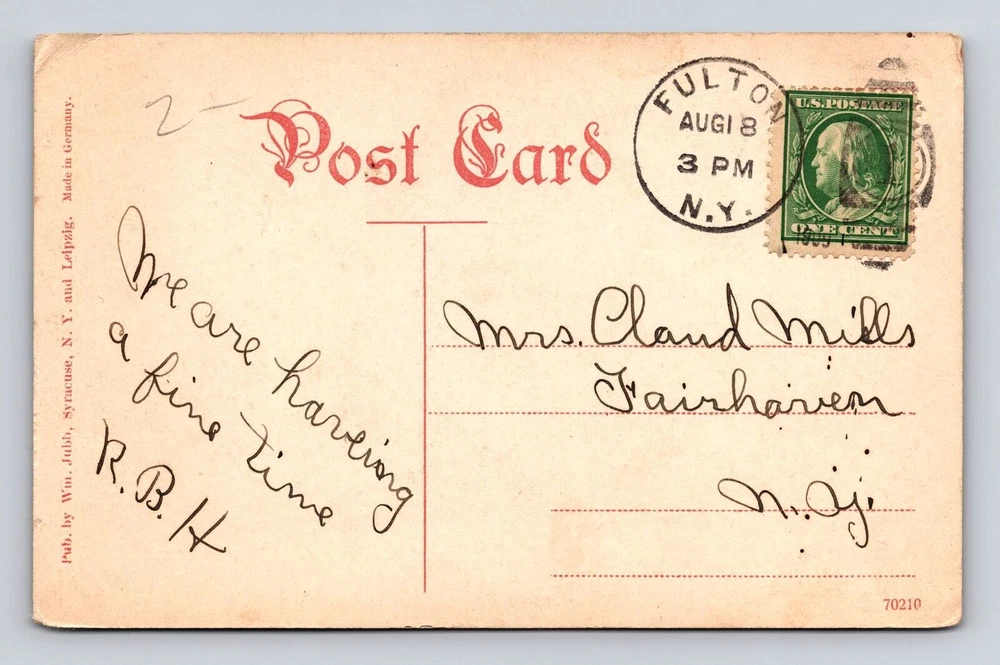 Pub. by Wm. Jubb, Syracuse, N. Y. and Leipzig. Made in Germany.
2-
Post Card
FULTON
AUG 18
3 PM
N.Y.
1909
U.S. POSTAGE
ONE CENT
We are haveing
a fine time
R. B. H
Mrs. Claud Mills
Fairhaven
N. Y.
70210